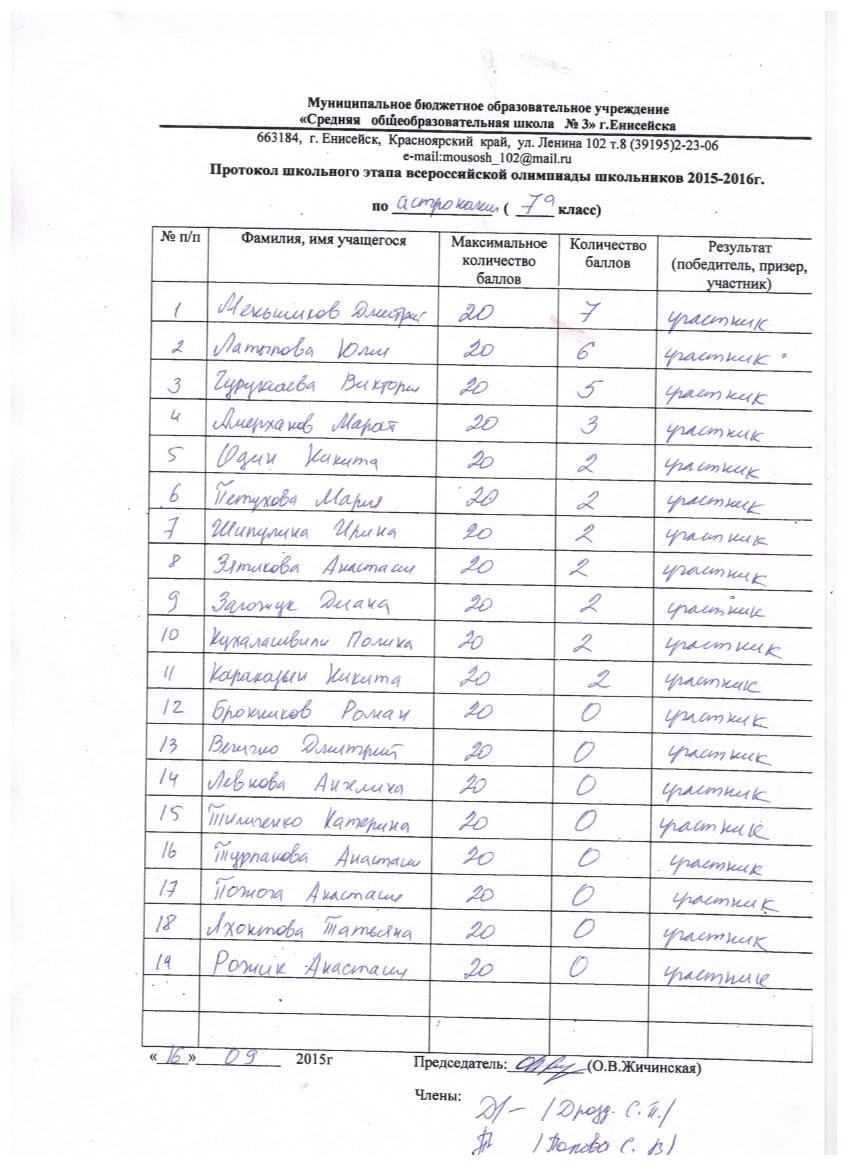 Муниципальное бюджетное образовательное учреждение
«Средняя общеобразовательная школа № 3» г.Енисейска
663184, г. Енисейск, Красноярский край, ул. Ленина 102 т.8 (39195)2-23-06
e-mail:mousosh_102@mail.ru
Протокол школьного этапа всероссийской олимпиады школьников 2015-2016г.
по астрономии ( 7а класс)
№ п/п Фамилия, имя учащегося Максимальное количество баллов Количество баллов Результат (победитель, призер, участник)
1 Меньшиков Дмитрий 20 7 участник
2 Латыпова Юлия 20 6 участник
3 Виктория 20 5 участник
4 Амерханов Марат 20 3 участник
5 Один Никита 20 2 участник
6 Петухова Мария 20 2 участник
7 Шипулина Ирина 20 2 участник
8 Зятикова Анастасия 20 2 участник
9 Диана 20 2 участник
10 Кухалашвили Полина 20 2 участник
11 Никита 20 2 участник
12 Роман 20 0 участник
13 Величко Дмитрий 20 0 участник
14 Левкова Анжелика 20 0 участник
15 Катерина 20 0 участник
16 Турпакова Анастасия 20 0 участник
17 Анастасия 20 0 участник
18 Лхонтова Татьяна 20 0 участник
19 Рожик Анастасия 20 0 участник
«16» 09 2015г Председатель: (О.В.Жичинская)
Члены:
/Дрозд. С.П./
/Попова С. В/